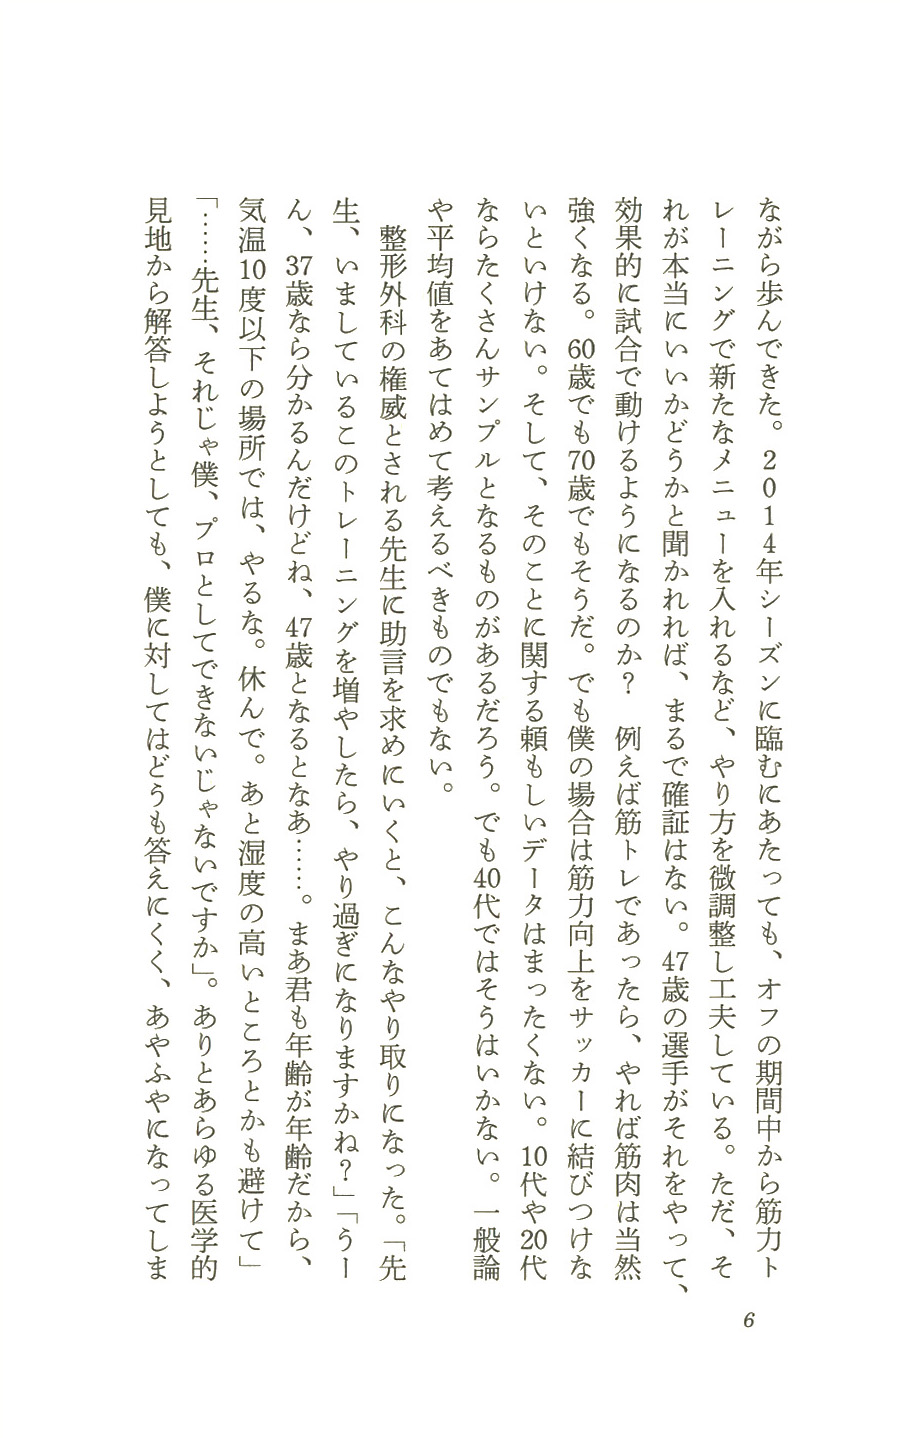 ながら歩んできた。2014年シーズンに臨むにあたっても、オフの期間中から筋力ト
レーニングで新たなメニューを入れるなど、やり方を微調整し工夫している。ただ、そ
れが本当にいいかどうかと聞かれれば、まるで確証はない。47歳の選手がそれをやって、
効果的に試合で動けるようになるのか？　例えば筋トレであったら、やれば筋肉は当然
強くなる。60歳でも70歳でもそうだ。でも僕の場合は筋力向上をサッカーに結びつけな
いといけない。そして、そのことに関する頼もしいデータはまったくない。10代や20代
ならたくさんサンプルとなるものがあるだろう。でも40代ではそうはいかない。一般論
や平均値をあてはめて考えるべきものでもない。
　整形外科の権威とされる先生に助言を求めにいくと、こんなやり取りになった。「先
生、いましているこのトレーニングを増やしたら、やり過ぎになりますかね？」「うー
ん、37歳なら分かるんだけどね、47歳となるとなあ……。まあ君も年齢が年齢だから、
気温10度以下の場所では、やるな。休んで。あと湿度の高いところとかも避けて」
「……先生、それじゃ僕、プロとしてできないじゃないですか」。ありとあらゆる医学的
見地から解答しようとしても、僕に対してはどうも答えにくく、あやふやになってしま
6